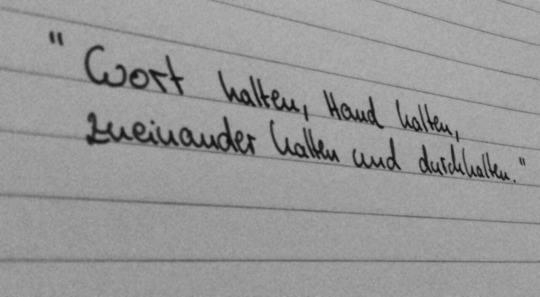 "Wort halten, Hand halten,
zueinander halten und durchhalten."